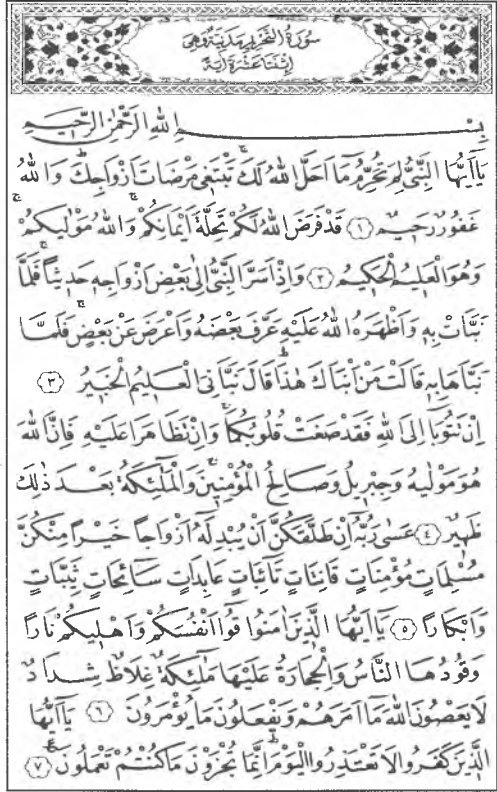 سُورَةُ التَّحْرِيمِ مَدَنِيَّةٌ وَهِيَ
اِثْنَتَا عَشْرَةَ اٰيَةً
بِسْمِ اللّٰهِ الرَّحْمٰنِ الرَّحٖيمِ
يَٓا اَيُّهَا النَّبِيُّ لِمَ تُحَرِّمُ مَٓا اَحَلَّ اللّٰهُ لَكَۚ تَبْتَغٖي مَرْضَاتَ اَزْوَاجِكَۜ وَاللّٰهُ
غَفُورٌ رَحٖيمٌ ﴿١﴾ قَدْ فَرَضَ اللّٰهُ لَكُمْ تَحِلَّةَ اَيْمَانِكُمْۚ وَاللّٰهُ مَوْلٰيكُمْۚ
وَهُوَ الْعَلٖيمُ الْحَكٖيمُ ﴿٢﴾ وَاِذْ اَسَرَّ النَّبِيُّ اِلٰى بَعْضِ اَزْوَاجِهٖ حَدٖيثًاۚ فَلَمَّا
نَبَّاَتْ بِهٖ وَاَظْهَرَهُ اللّٰهُ عَلَيْهِ عَرَّفَ بَعْضَهُ وَاَعْرَضَ عَنْ بَعْضٍۚ فَلَمَّا
نَبَّاَهَا بِهٖ قَالَتْ مَنْ اَنْبَاَكَ هٰذَاۜ قَالَ نَبَّاَنِيَ الْعَلٖيمُ الْخَبٖيرُ ﴿٣﴾
اِنْ تَتُوبَٓا اِلَى اللّٰهِ فَقَدْ صَغَتْ قُلُوبُكُمَاۚ وَاِنْ تَظَاهَرَا عَلَيْهِ فَاِنَّ اللّٰهَ
هُوَ مَوْلٰيهُ وَجِبْرٖيلُ وَصَالِحُ الْمُؤْمِنٖينَۚ وَالْمَلٰٓئِكَةُ بَعْدَ ذٰلِكَ
ظَهٖيرٌ ﴿٤﴾ عَسٰى رَبُّهُٓ اِنْ طَلَّقَكُنَّ اَنْ يُبْدِلَهُٓ اَزْوَاجًا خَيْرًا مِنْكُنَّ
مُسْلِمَاتٍ مُؤْمِنَاتٍ قَانِتَاتٍ تَٓائِبَاتٍ عَابِدَاتٍ سَٓائِحَاتٍ ثَيِّبَاتٍ
وَاَبْكَارًا ﴿٥﴾ يَٓا اَيُّهَا الَّذٖينَ اٰمَنُوا قُٓوا اَنْفُسَكُمْ وَاَهْلٖيكُمْ نَارًا
وَقُودُهَا النَّاسُ وَالْحِجَارَةُ عَلَيْهَا مَلٰٓئِكَةٌ غِلَاظٌ شِدَادٌ
لَا يَعْصُونَ اللّٰهَ مَٓا اَمَرَهُمْ وَيَفْعَلُونَ مَا يُؤْمَرُونَ ﴿٦﴾ يَٓا اَيُّهَا
الَّذٖينَ كَفَرُوا لَا تَعْتَذِرُوا الْيَوْمَۜ اِنَّمَا تُجْزَوْنَ مَا كُنْتُمْ تَعْمَلُونَ ﴿٧﴾